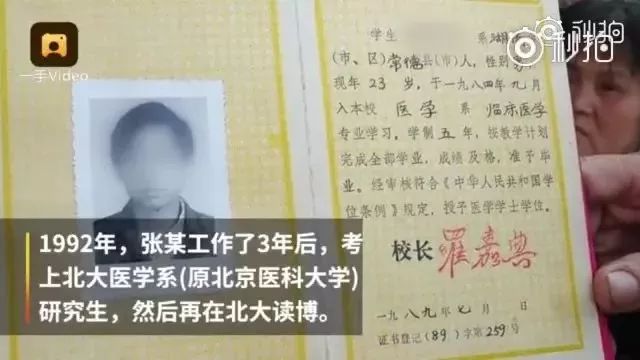 一手Video
秒拍
秒拍
学生 系湖
(市、区)常德县(市)人，性别
现年23岁，于一九八四年九月
入本校医学系临床医学
专业学习。学制五年，按教学计划
完成全部学业，成绩及格，准予毕
业。经审核符合《中华人民共和国学
位条例》规定，授予医学学士学位。
校长 罗嘉典
一九八九年七月 日
证书登记(89)字第259号
1992年，张某工作了3年后，考
上北大医学系(原北京医科大学)
研究生，然后再在北大读博。